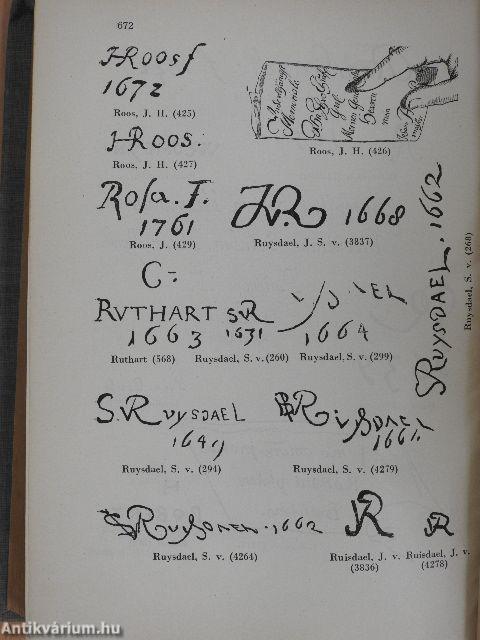 672
JHRoos f
1672
Roos, J. H. (425)
Roos, J. H. (426)
JHRoos.
Roos, J. H. (427)
Rosa. F.
1761
Roos, J. (429)
JvR 1668
Ruysdael, J. S. v. (3837)
RUYSDAEL. 1662
Ruysdael, S. v. (268)
C=
RVTHART
1663
Ruthart (568)
S.VR
1631
Ruysdael, S. v. (260)
1664
Ruysdael, S. v. (299)
S.VRuysDAEL
1649
Ruysdael, S. v. (294)
Ruysdael, S. v. (4279)
1662
Ruysdael, S. v. (4264)
JR
Ruisdael, J. v.
(3836)
JR
Ruisdael, J. v.
(4278)
Antikvárium.hu